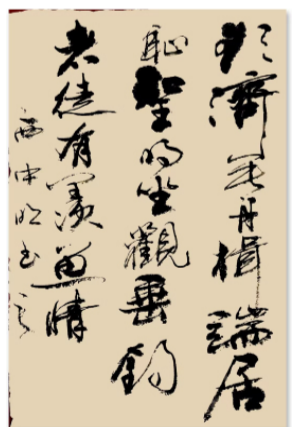 欲濟无舟楫端居
恥聖明坐觀垂釣
者徒有羨魚情